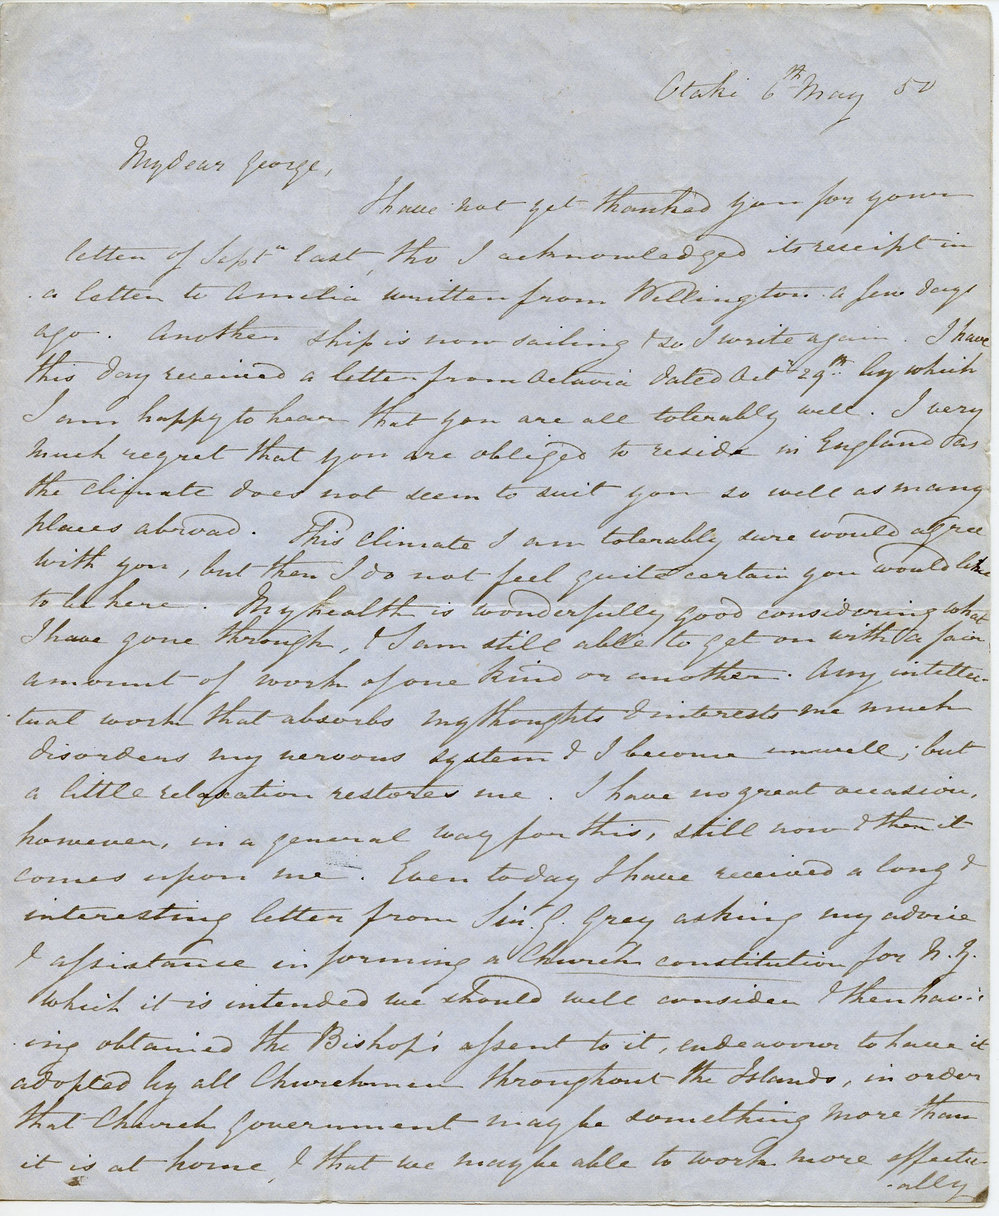 Otaki 6th May 50
My dear George,
I have not yet thanked you for your
letter of Septr last, tho I acknowledged its receipt in
a letter to Amelia written from Wellington a few days
ago. Another ship is now sailing & so I write again. I have
this day received a letter from Octavia dated Octr 29th by which
I am happy to hear that you are all tolerably well. I very
much regret that you are obliged to reside in England as
the climate does not seem to suit you so well as many
places abroad. This climate I am tolerably sure would agree
with you, but then I do not feel quite certain you would like
to be here. My health is wonderfully good considering what
I have gone through, & I am still able to get on with a fair
amount of work of one kind or another. Any intellec-
tual work that absorbs my thoughts & interests me much
disorders my nervous system & I become unwell; but
a little relaxation restores me. I have no great occasion,
however, in a general way for this, still now & then it
comes upon me. Even today I have received a long &
interesting letter from Sir G. Grey asking my advice
& assistance in forming a Church constitution for N.Z.
which it is intended we should well consider & then hav-
ing obtained the Bishop's assent to it, endeavour to have it
adopted by all Churchmen throughout the Islands, in order
that Church Government may be something more than
it is at home, & that we may be able to work more effectu-
-ally